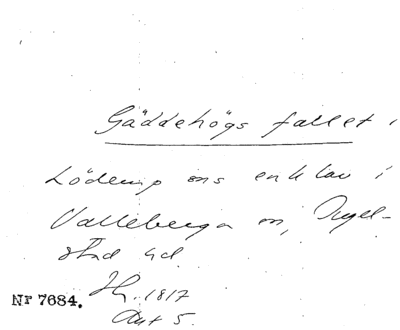 Gäddehögs fallet i
Löderup sns enklav i
Valleberga sn, Ingel-
stad hd
Nr 7684. Hg. 1817
Akt 5.